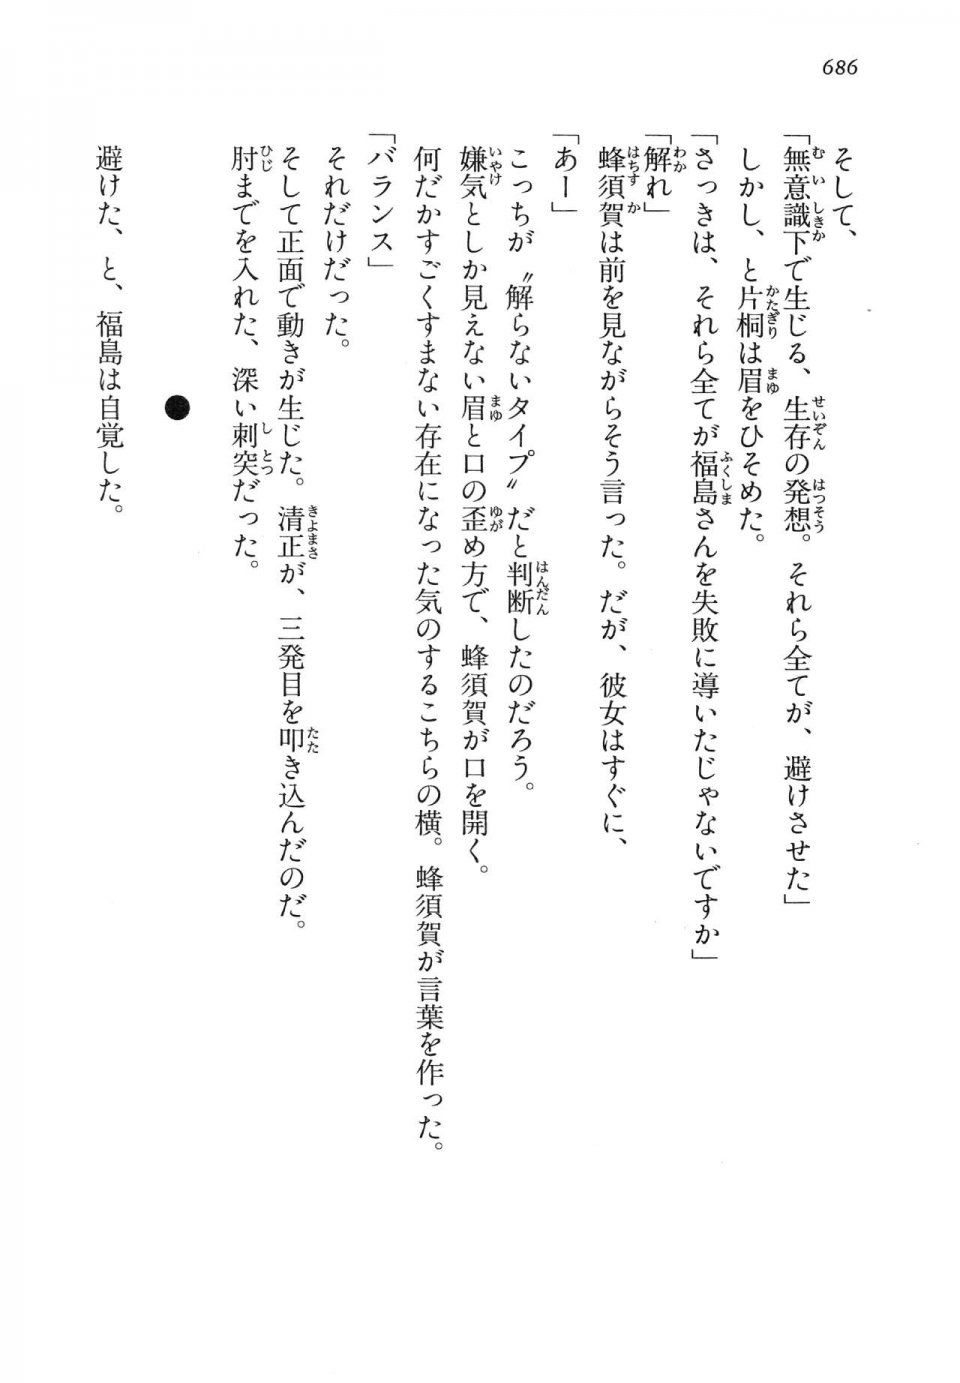 686
そして、
「無意識下で生じる、生存の発想。それら全てが、避けさせた」
しかし、と片桐は眉をひそめた。
「さっきは、それら全てが福島さんを失敗に導いたじゃないですか」
「解れ」
蜂須賀は前を見ながらそう言った。だが、彼女はすぐに、
「あー」
こっちが〝解らないタイプ〟だと判断したのだろう。
嫌気としか見えない眉と口の歪め方で、蜂須賀が口を開く。
何だかすごくすまない存在になった気のするこちらの横。蜂須賀が言葉を作った。
「バランス」
それだけだった。
そして正面で動きが生じた。清正が、三発目を叩き込んだのだ。
肘までを入れた、深い刺突だった。
●
避けた、と、福島は自覚した。